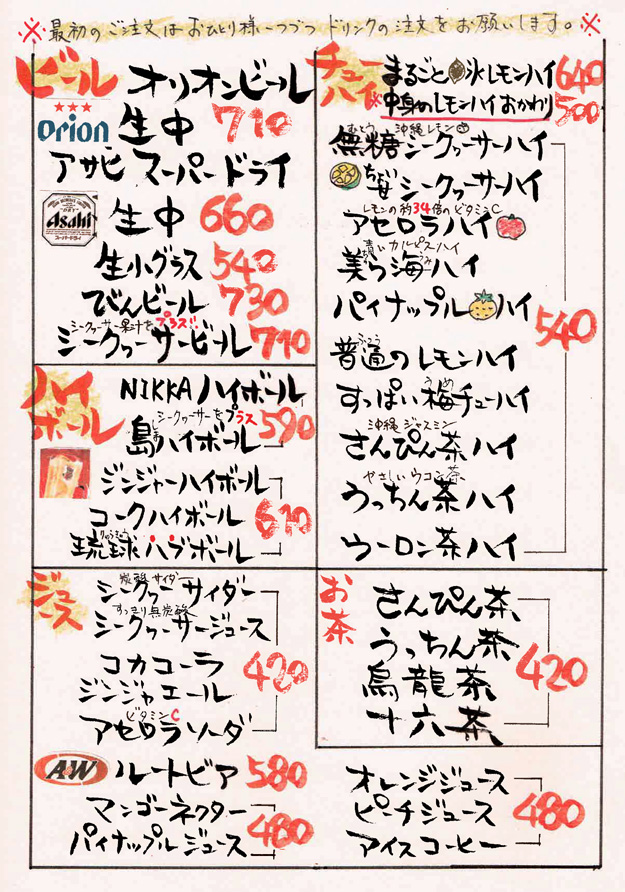 ※最初のご注文はおひとり様一つづつドリンクの注文をお願いします。※
ビール
オリオンビール
orion
生中 710
アサヒ スーパードライ
Asahi
スーパードライ
生中 660
生小グラス 540
びんビール 730
シークヮーサー果汁をプラス!!
シークヮーサービール 710
ハイボール
NIKKA ハイボール
シークヮーサーをプラス
島ハイボール 590
ジンジャーハイボール
コークハイボール 610
琉球ハブボール
ジュース
炭酸サイダー
シークヮーサイダー
すっきり無炭酸
シークヮーサージュース
コカコーラ 420
ジンジャエール
ビタミンC
アセロラソーダ
A&W ルートビア 580
マンゴーネクター
パイナップルジュース 480
チューハイ
まるごと氷レモンハイ 640
中身のレモンハイおかわり 500
むとう 沖縄レモン
無糖シークヮーサーハイ
シークヮーサーハイ
レモンの約34倍のビタミンC
アセロラハイ
青いカルピスハイ
美ら海ハイ
パイナップルハイ 540
ふつう
普通のレモンハイ
うめ
すっぱい梅チューハイ
沖縄ジャスミン
さんぴん茶ハイ
やさしいウコン茶
うっちん茶ハイ
ウーロン茶ハイ
お茶
さんぴん茶
うっちん茶 420
烏龍茶
十六茶
オレンジジュース
ピーチジュース 480
アイスコーヒー